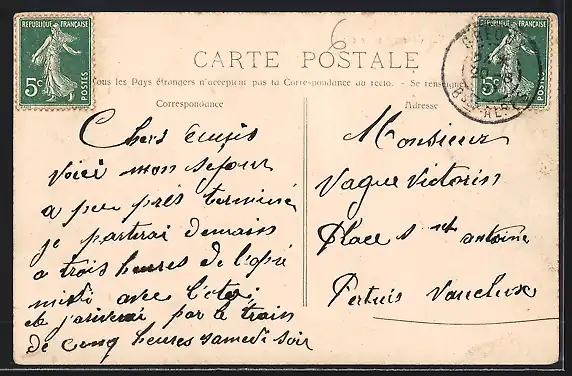 REPUBLIQUE FRANÇAISE
5c POSTES
6
CARTE POSTALE
REPUBLIQUE FRANÇAISE
5c POSTES
Bses-ALPES
Tous les Pays étrangers n'acceptent pas la Correspondance au recto. - Se renseigner
Correspondance
Chers amis
Voici mon sejour
a peu prés terminé
je partirai demain
a trois heures de l'apré
midi avec
et j'ariverai par le train
de cinq heures samedi soir
Adresse
Monsieur
Vague Victorin
Place St antoine
Pertuis Vaucluse